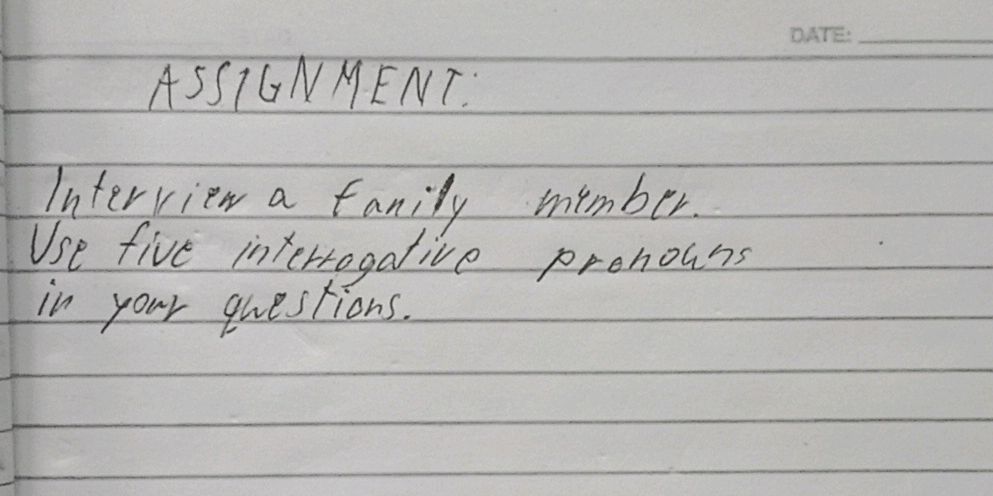 DATE:
ASSIGNMENT:
Interview a family member.
Use five interrogative pronouns
in your questions.